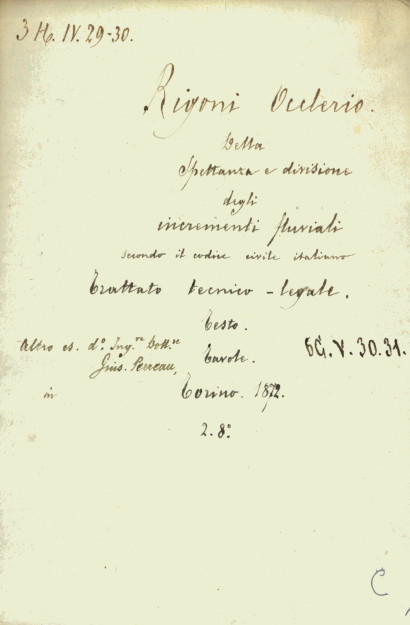 3 H. IV. 29-30.
Rigoni Oclerio.
Della
Spettanza e divisione
degli
incrementi fluviali
secondo il codice civile italiano
Trattato tecnico - legale.
Testo.
Altro es. d°. Ing.re Dott.re
Gius. Perreau,
Tavole.
6G. V. 30.31.
in
Torino. 1872.
2. 8°
C